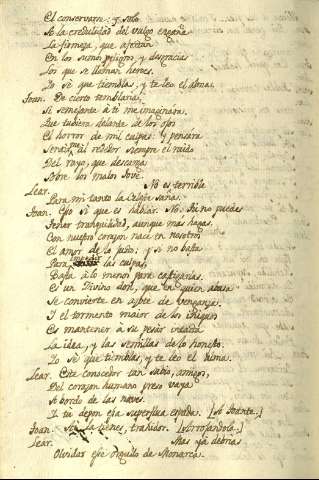 El conservarse: y solo
Se la credulidad del vulgo engaña
La firmeza, que afectan
En los sumos peligros, y desgracias
Los que se llaman heroes.
Yo sé que tiemblas, y te leo el alma.
Joan. De cierto temblaria,
Si semejante á ti me imaginara.
Que tuviera delante de los ojos
El horror de mil culpas: Y pensara
Sentir al rededor siempre el ruido
Del rayo, que descarga
Sobre los malos Jove.
Lear. No es terrible
Para mi tanto la Celeste saña.
Joan. Eso si que es hablar. No: Tu no puedes
Tener tranquilidad, aunque mas hagas.
Con nuestro corazon nace en nosotros
El amor de lo justo; y si no basta
Para impedir las culpas,
Basta á lo menos para castigarlas.
Es un Divino don, que en quien abusa
Se convierte en azote de venganza.
Y el tormento maior de los iniquos
Es mantener á su pesar
La idea, y las semillas de lo honesto.
Yo sé que tiemblas, y te leo el alma.
Lear. Este conocedor tan sabio, amigos,
Del corazon humano preso vaya
A bordo de las naves.
I tu depon esa superflua espada. [A Joante.]
Joan. Si: la tienes, traidor. [Arrojandola.]
Lear. Mas ya debrias
Olvidar ese orgullo de Monarca.